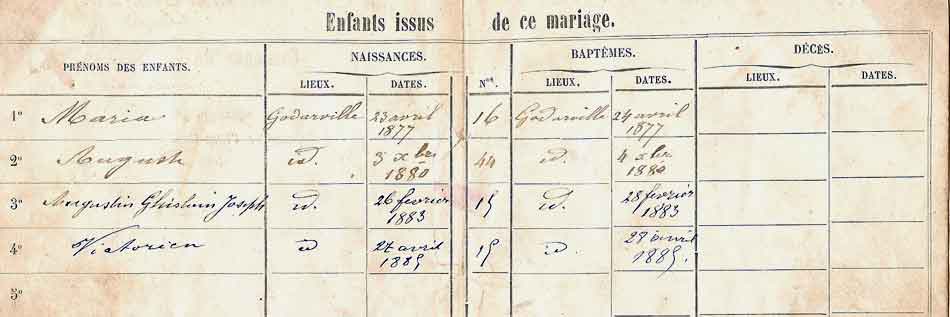 Enfants issus de ce mariage.
PRÉNOMS DES ENFANTS. NAISSANCES. BAPTÊMES. DÉCÈS.
LIEUX. DATES. Nos. LIEUX. DATES. LIEUX. DATES.
1o Maria Godarville 23 avril 1877 16 Godarville 24 avril 1877
2o Auguste id. 3 xbre 1880 44 id. 4 xbre 1880
3o Augustin Ghislain Joseph id. 26 fevrier 1883 15 id. 28 fevrier 1883
4o Victorien id 27 avril 1885 15 id 29 avril 1885.
5o